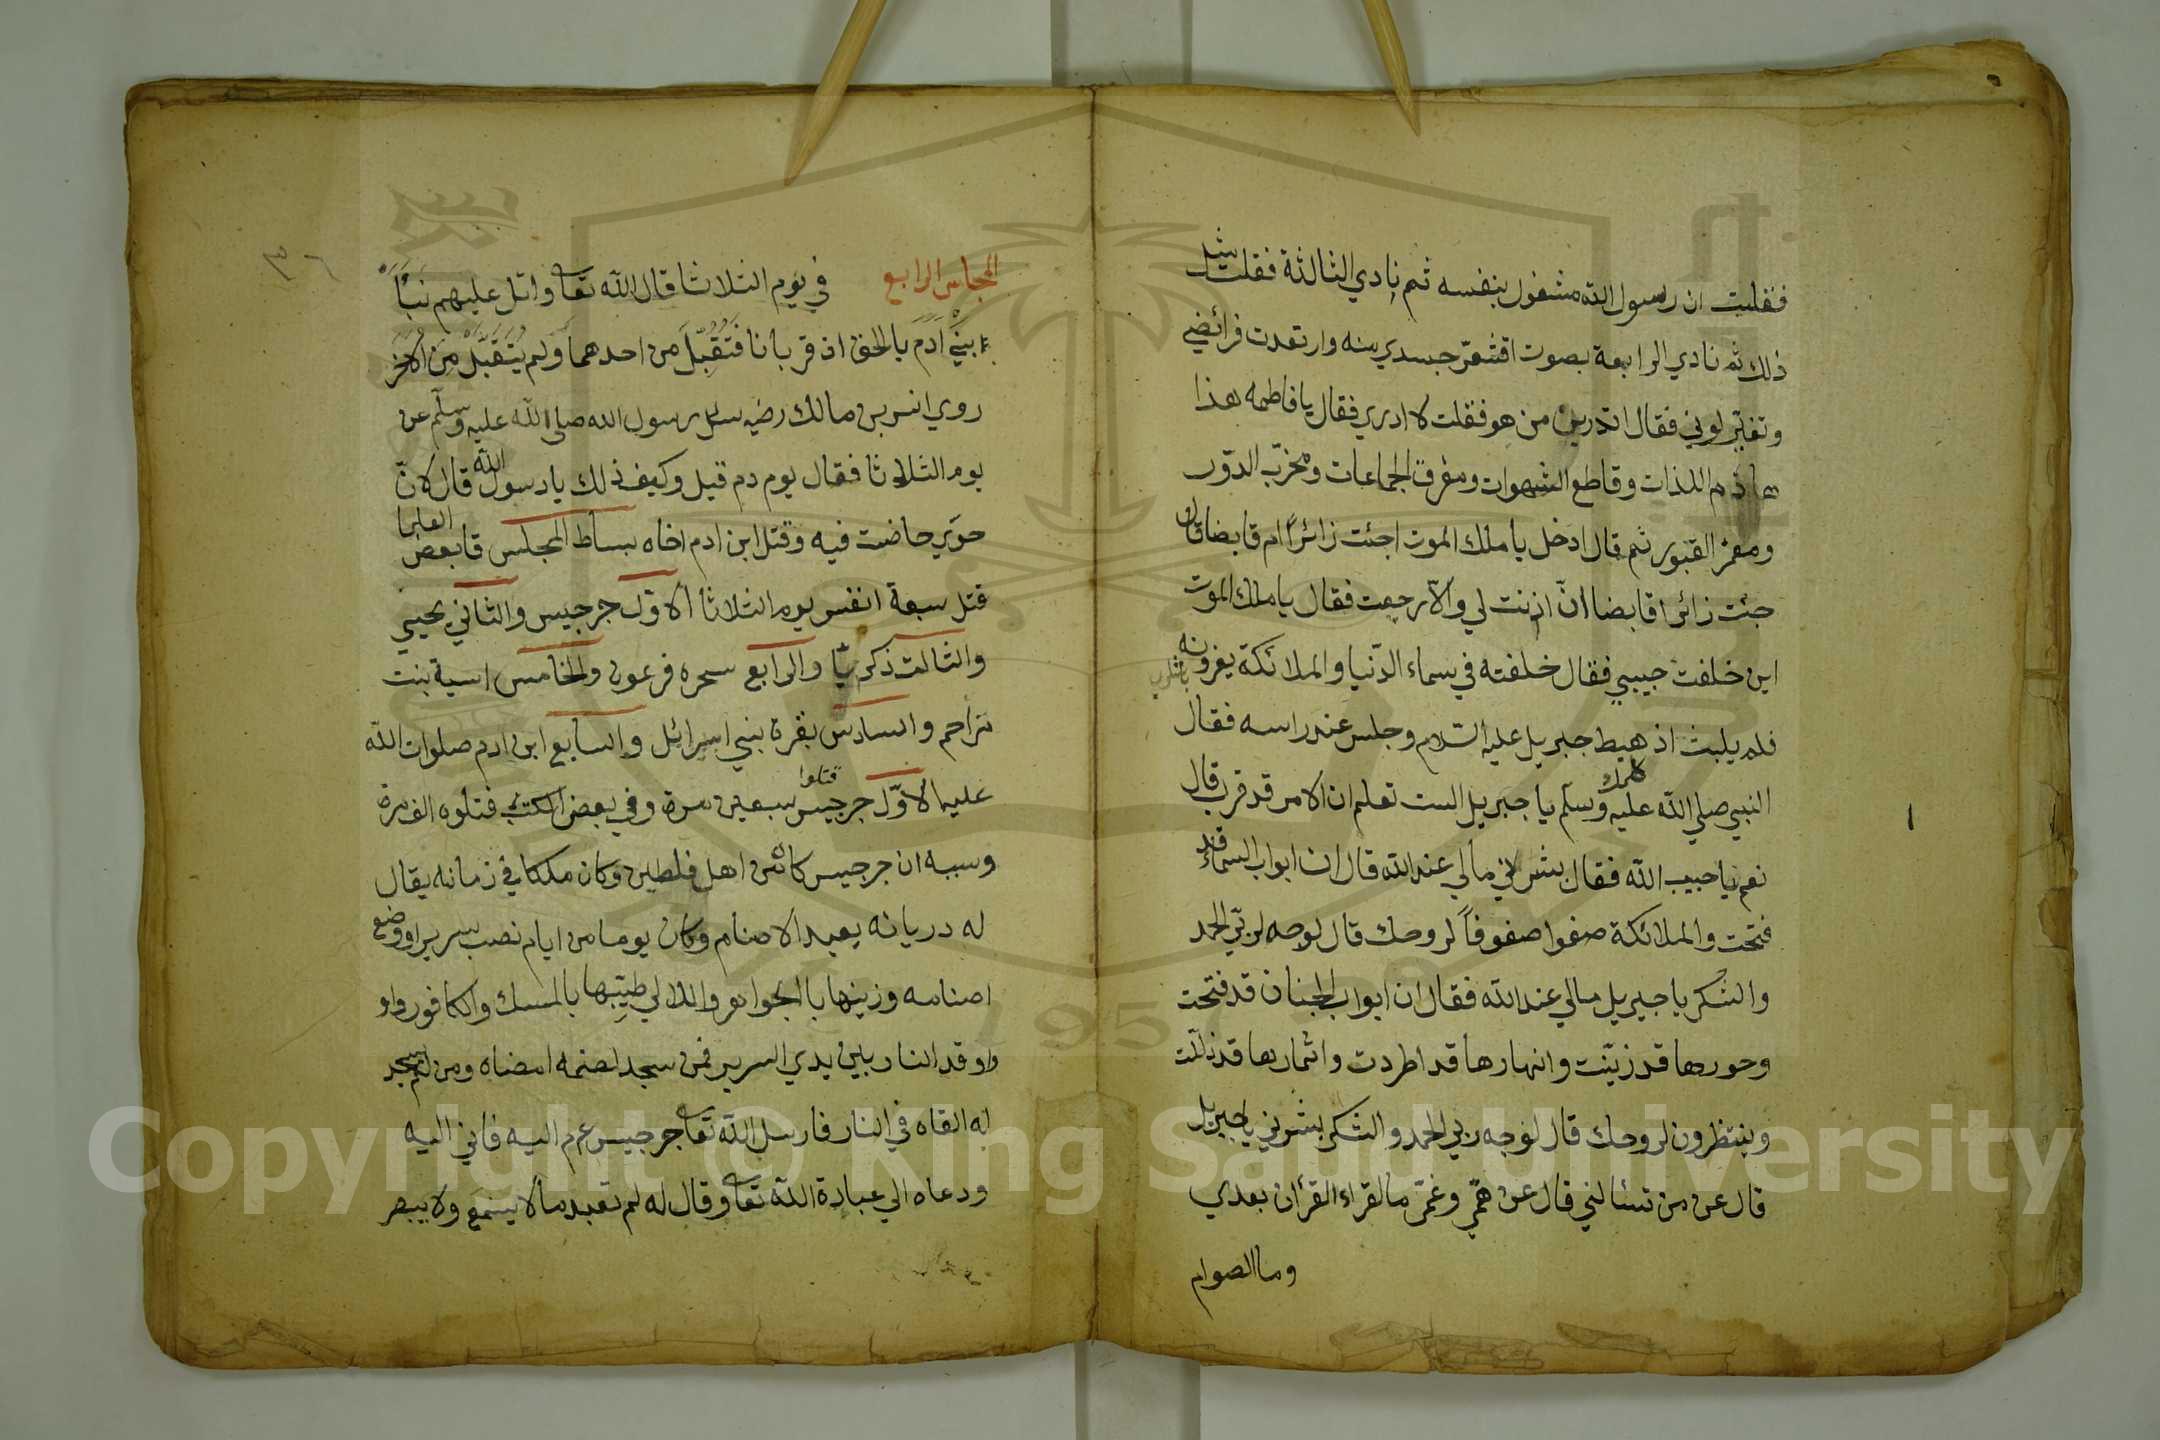 فقلت ان رسول الله مشغول بنفسه ثم نادي الثالثة فقلت مثل
ذلك ثم نادي الرابعة بصوت اقشعرّ جسدي منه وارتعدت فرائضي
وتغيّر لوني فقال اتدرين من هو فقلت لا ادري فقال يا فاطمه هذا
هاذم اللذات وقاطع الشهوات ومفرق الجماعات ومخرّب الدّور
ومعمّر القبور ثم قال ادخل يا ملك الموت اجئت زائراً ام قابضا قال
جئت زائرا قابضا انّ اذنت لي والّا رجعت فقال يا ملك الموت
اين خلفت حبيبي فقال خلفته في سماء الدّنيا والملائكة يعزونه
فلم يلبث اذ هبط جبريل عليه السّلام وجلس عند راسه فقال
النبي صلي الله عليه وسلّم يا جبريل الست تعلم ان الامر قد قرب قال
نعم يا حبيب الله فقال بشرني مالي عند الله قال ان ابواب السماء قد
فتحت والملائكة صفوا صفوفاً لروحك قال لوجه ربّي الحمد
والشكر يا جبريل مالي عند الله فقال ان ابواب الجنان قد فتحت
وحورها قد زيّنت وانهارها قد اطردت واثمارها قد ذلّلت
وينتظرون لروحك قال لوجه ربي الحمد والشكر بشرني يا جبريل
قال عن من تسئالني قال عن همّي وغمّي ما لقراء القرأن بعدي
وما الصوام
المجلس الرابع في يوم الثلاثا قال الله تعا واتل عليهم نَبَأَ
ابنَيْ اٰدَمَ بالحق اذ قربانا فَتُقُبِّلَ من احدهما ولم يُتَقَبَّلْ مِنَ الاٰخَرِ
روي انس بن مالك رضيه سئل رسول الله صلي الله عليه وسلّم عن
يوم الثلاثا فقال يوم دم قيل وكيف ذلك يا رسول الله قال لانّ
حوّي حاضت فيه وقتل ابن ادم اخاه بساط المجلس قا بعض العلما
قتل سبعة انفس يوم الثلاثا الاوّل جرجيس والثاني يحيي
والثالث ذكريّا والرابع سحره فرعون والخامس اسية بنت
مزاحم والسادس بقرة بني اسرائل والسابع ابن ادم صلوات الله
عليه الاوّل جرجيس قتلوا سبعين مرة وفي بعض الكتب قتلوه الف مرة
وسببه ان جرجيس كان من اهل فلطين وكان ملكا في زمانه يقال
له دريانه يعبد الاصنام وكان يوما من ايام نصب سريرا ووضع
اصنامه وزينها بالجواهر واللالي طيّبها بالمسك والكافور واو
واوقد النار بين يدي السرير فمن سجد لصنمه امضاه ومن لم يسجد
له القاه في النار فارسل الله تعا جرجيس عم م اليه فاني اليه
ودعاه الي عبادة الله تعا وقال له لم تعبد ما لا يسمع ولا يبصر
٣٦
Copyright © King Saud University
1957